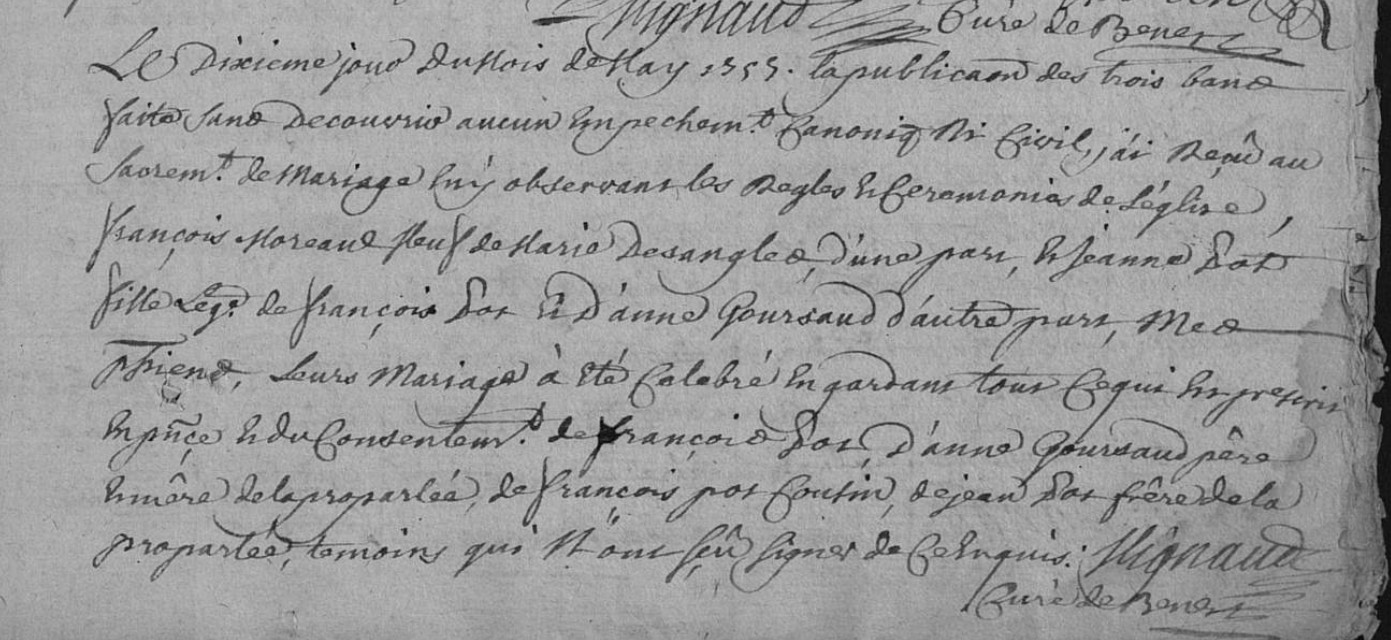 Mignaud Curé de Benest
Le Dixieme jour Du Mois de May 1757. la publicaon des trois bans
faite sans Decouvrir aucun Empechemt. Canoniq Ni Civil, j'ai Reçû au
Sacremt. de Mariage En y observant les Regles et Ceremonies de L'église,
françois Moreaud Veuf de Marie Desangles, d'une part, et Jeanne Pot
fille Légе. de françois Pot Et D'anne Goursaud d'autre part, Mes
Leurs Mariage à eté Celebré En gardant tout Ce qui Est prescrit
En pñce et du Consentemt. de françois Pot, D'anne Goursaud pêre
et mêre de la proparlée, de françois pot Coutin, de jean Pot frêre de la
proparlée, temoins qui N'ont sçû signer de Ce Enquis. Mignaud
Curé de Benest